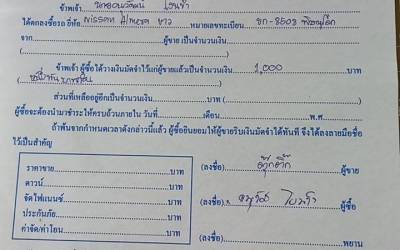 ข้าพเจ้า
ได้ตกลงซื้อรถ ยี่ห้อ Nissan Almera ขาว หมายเลขทะเบียน ขก-8503 พิษณุโลก
จาก ผู้ขาย เป็นจำนวนเงิน บาท
ข้าพเจ้า ผู้ซื้อได้วางเงินมัดจำไว้แก่ผู้ขายแล้วเป็นจำนวนเงิน 1,000 บาท
(หนึ่งพันบาทถ้วน)
ส่วนที่เหลืออยู่อีกเป็นจำนวนเงิน บาท ( )
ผู้ซื้อจะต้องนำมาชำระให้ครบถ้วนภายใน วันที่ เดือน พ.ศ.
ถ้าพ้นจากกำหนดเวลาดังกล่าวนี้แล้ว ผู้ซื้อยินยอมให้ผู้ขายริบเงินมัดจำได้ทันที จึงได้ลงลายมือชื่อ
ไว้เป็นสำคัญ
ราคาขาย บาท
ดาวน์ บาท
จัดไฟแนนซ์ บาท
ประกันภัย บาท
ค่าจัด/ค่าโอน บาท
(ลงชื่อ) ตุ๊กติ๊ก ผู้ขาย
(ลงชื่อ) ผู้ซื้อ
(ลงชื่อ) พยาน